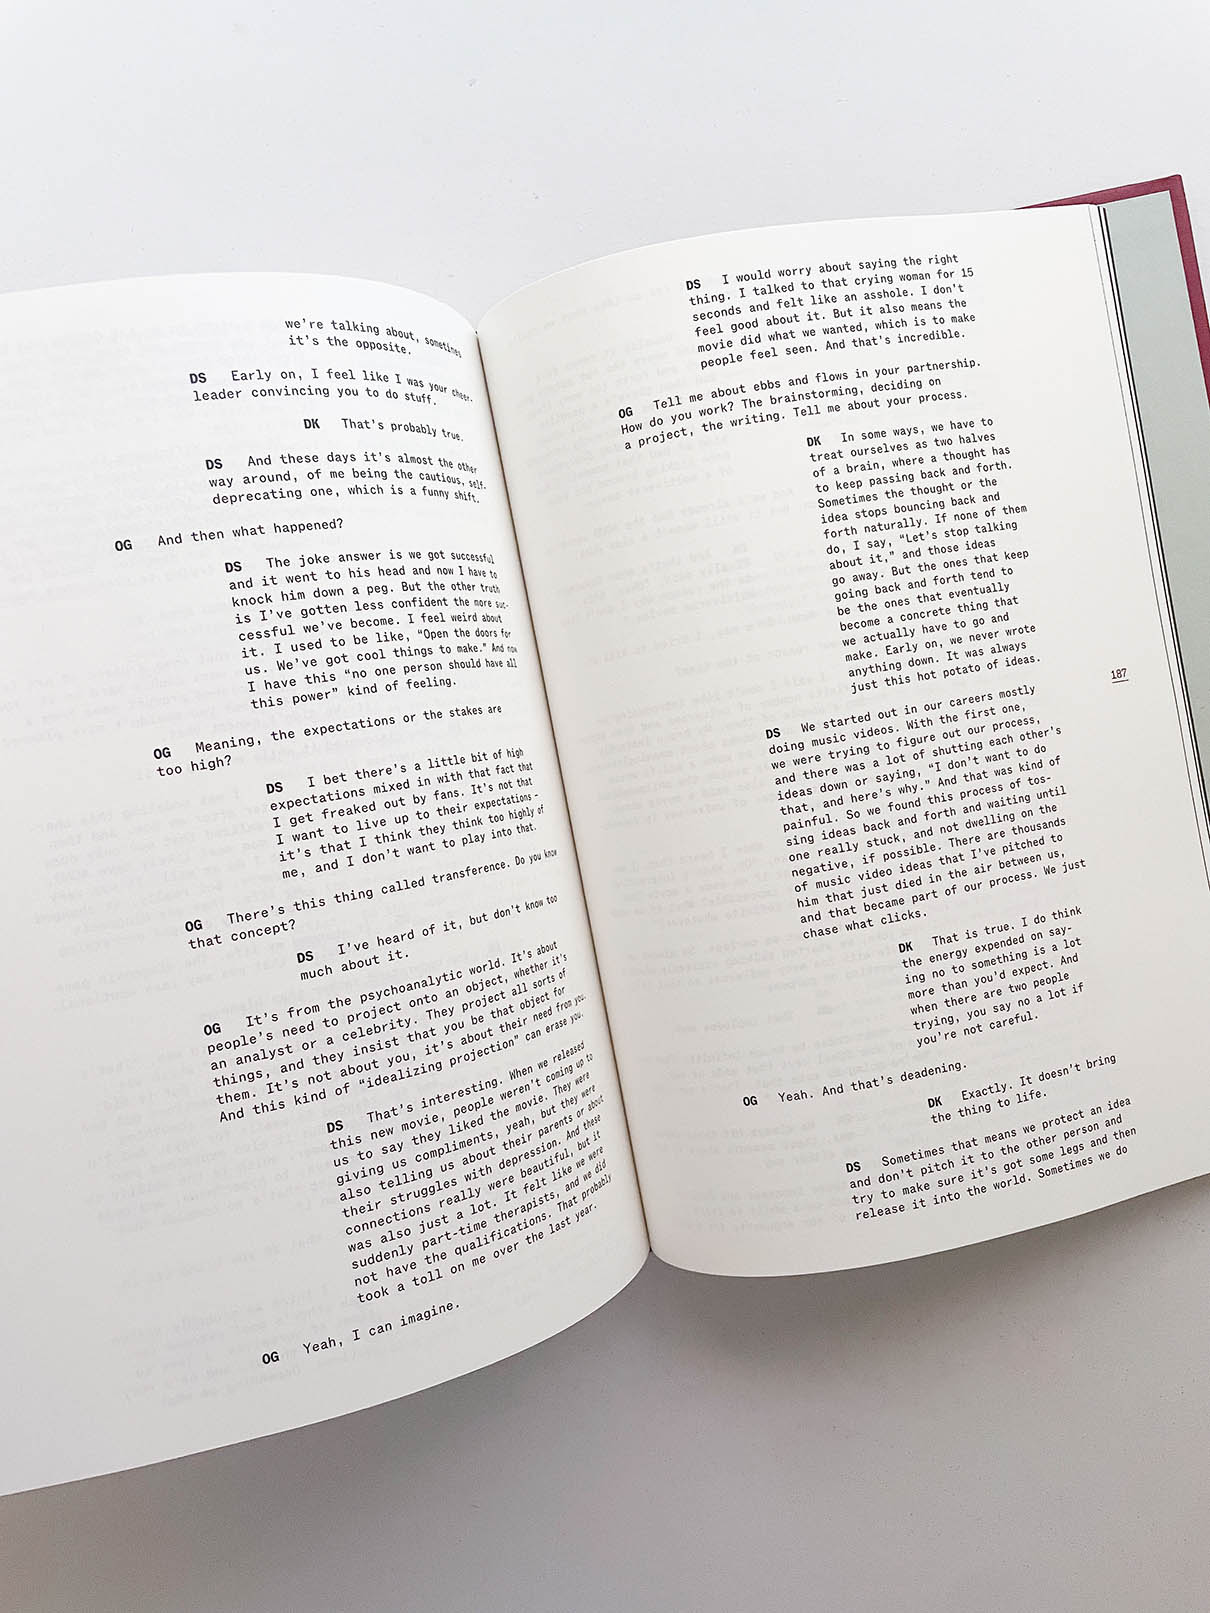 we're talking about, sometimes
it's the opposite.
DS Early on, I feel like I was your cheer-
leader convincing you to do stuff.
DK That's probably true.
DS And these days it's almost the other
way around, of me being the cautious, self-
deprecating one, which is a funny shift.
OG And then what happened?
DS The joke answer is we got successful
and it went to his head and now I have to
knock him down a peg. But the other truth
is I've gotten less confident the more suc-
cessful we've become. I feel weird about
it. I used to be like, “Open the doors for
us. We've got cool things to make.” And now
I have this “no one person should have all
this power” kind of feeling.
OG Meaning, the expectations or the stakes are
too high?
DS I bet there's a little bit of high
expectations mixed in with that fact that
I get freaked out by fans. It's not that
I want to live up to their expectations –
it's that I think they think too highly of
me, and I don't want to play into that.
OG There's this thing called transference. Do you know
that concept?
DS I've heard of it, but don't know too
much about it.
OG It's from the psychoanalytic world. It's about
people's need to project onto an object, whether it's
an analyst or a celebrity. They project all sorts of
things, and they insist that you be that object for
them. It's not about you, it's about their need from you.
And this kind of “idealizing projection” can erase you.
DS That's interesting. When we released
this new movie, people weren't coming up to
us to say they liked the movie. They were
giving us compliments, yeah, but they were
also telling us about their parents or about
their struggles with depression. And these
connections really were beautiful, but it
was also just a lot. It felt like we were
suddenly part-time therapists, and we did
not have the qualifications. That probably
took a toll on me over the last year.
OG Yeah, I can imagine.
DS I would worry about saying the right
thing. I talked to that crying woman for 15
seconds and felt like an asshole. I don't
feel good about it. But it also means the
movie did what we wanted, which is to make
people feel seen. And that's incredible.
OG Tell me about ebbs and flows in your partnership.
How do you work? The brainstorming, deciding on
a project, the writing. Tell me about your process.
DK In some ways, we have to
treat ourselves as two halves
of a brain, where a thought has
to keep passing back and forth.
Sometimes the thought or the
idea stops bouncing back and
forth naturally. If none of them
do, I say, “Let's stop talking
about it,” and those ideas
go away. But the ones that keep
going back and forth tend to
be the ones that eventually
become a concrete thing that
we actually have to go and
make. Early on, we never wrote
anything down. It was always
just this hot potato of ideas.
187
DS We started out in our careers mostly
doing music videos. With the first one,
we were trying to figure out our process,
and there was a lot of shutting each other's
ideas down or saying, “I don't want to do
that, and here's why.” And that was kind of
painful. So we found this process of tos-
sing ideas back and forth and waiting until
one really stuck, and not dwelling on the
negative, if possible. There are thousands
of music video ideas that I've pitched to
him that just died in the air between us,
and that became part of our process. We just
chase what clicks.
DK That is true. I do think
the energy expended on say-
ing no to something is a lot
more than you'd expect. And
when there are two people
trying, you say no a lot if
you're not careful.
OG Yeah. And that's deadening.
DK Exactly. It doesn't bring
the thing to life.
DS Sometimes that means we protect an idea
and don't pitch it to the other person and
try to make sure it's got some legs and then
release it into the world. Sometimes we do